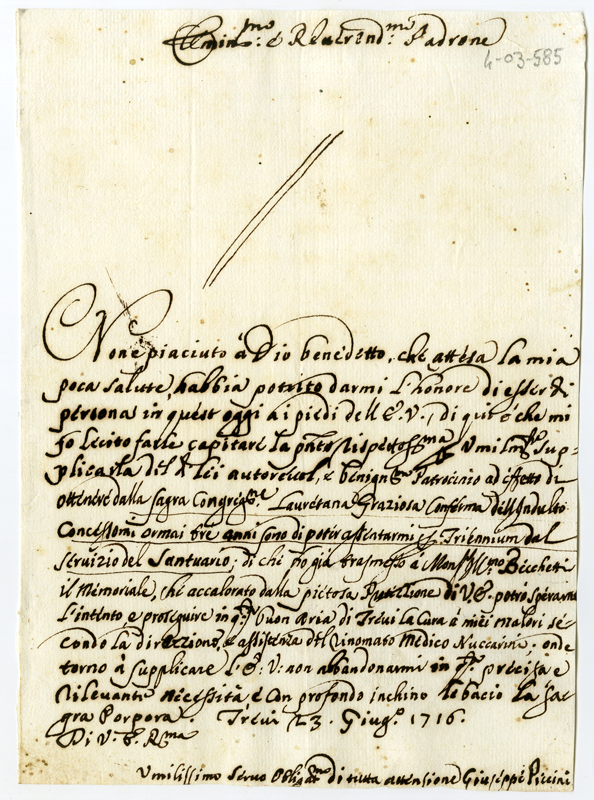 Emin.mo: e Reuerend.mo Padrone
4-03-585
Non è piaciuto à Dio benedetto, che attesa la mia
poca salute, habbia potuto darmi l'honore di esser di
persona in quest'oggi ai piedi dell'E.V., di qui è che mi
fo lecito farle capitare la p̄nte rispettosma Umilm.te sup=
plicarla del di lei autoreuol, e benigno Patrocinio ad effetto di
ottenere dalla sagra Congreg.ne Lauretana graziosa Conferma dell'Indulto
Concessomi ormai tre anni sono di poter assentarmi per Triennium dal
seruizio del Santuario; di che fo già trasmesso a Mons.r Ill.mo Becchetti
il Memoriale, che accalorato dalla pietosa Protezione di V.E. potrò sperarne
l'intento e proseguire in q.sta buon'Aria di Treui la Cura a miei malori se=
condo la direzzione, e assistenza del rinomato Medico Nuccarini; onde
torno à supplicare l'E: V: non abandonarmi in q.sta precisa e
rileuante necessità, e con profondo inchino le bacio la sa=
gra Porpora. Treui 23. Giug.o 1716.
Di V. E. R.ma
Vmilissimo Seruo Oblig.mo di tutta attenzione Giuseppe Piccini